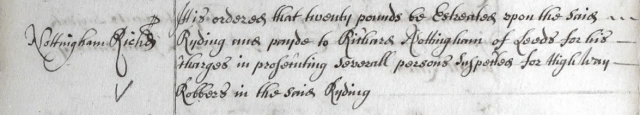 Nottingham Richd
It is ordered that twenty pounds be Estreated upon the said
Ryding and payde to Richard Nottingham of Leeds for his
Charges in prosecuting severall persons suspected for High Way
Robbers in the said Ryding